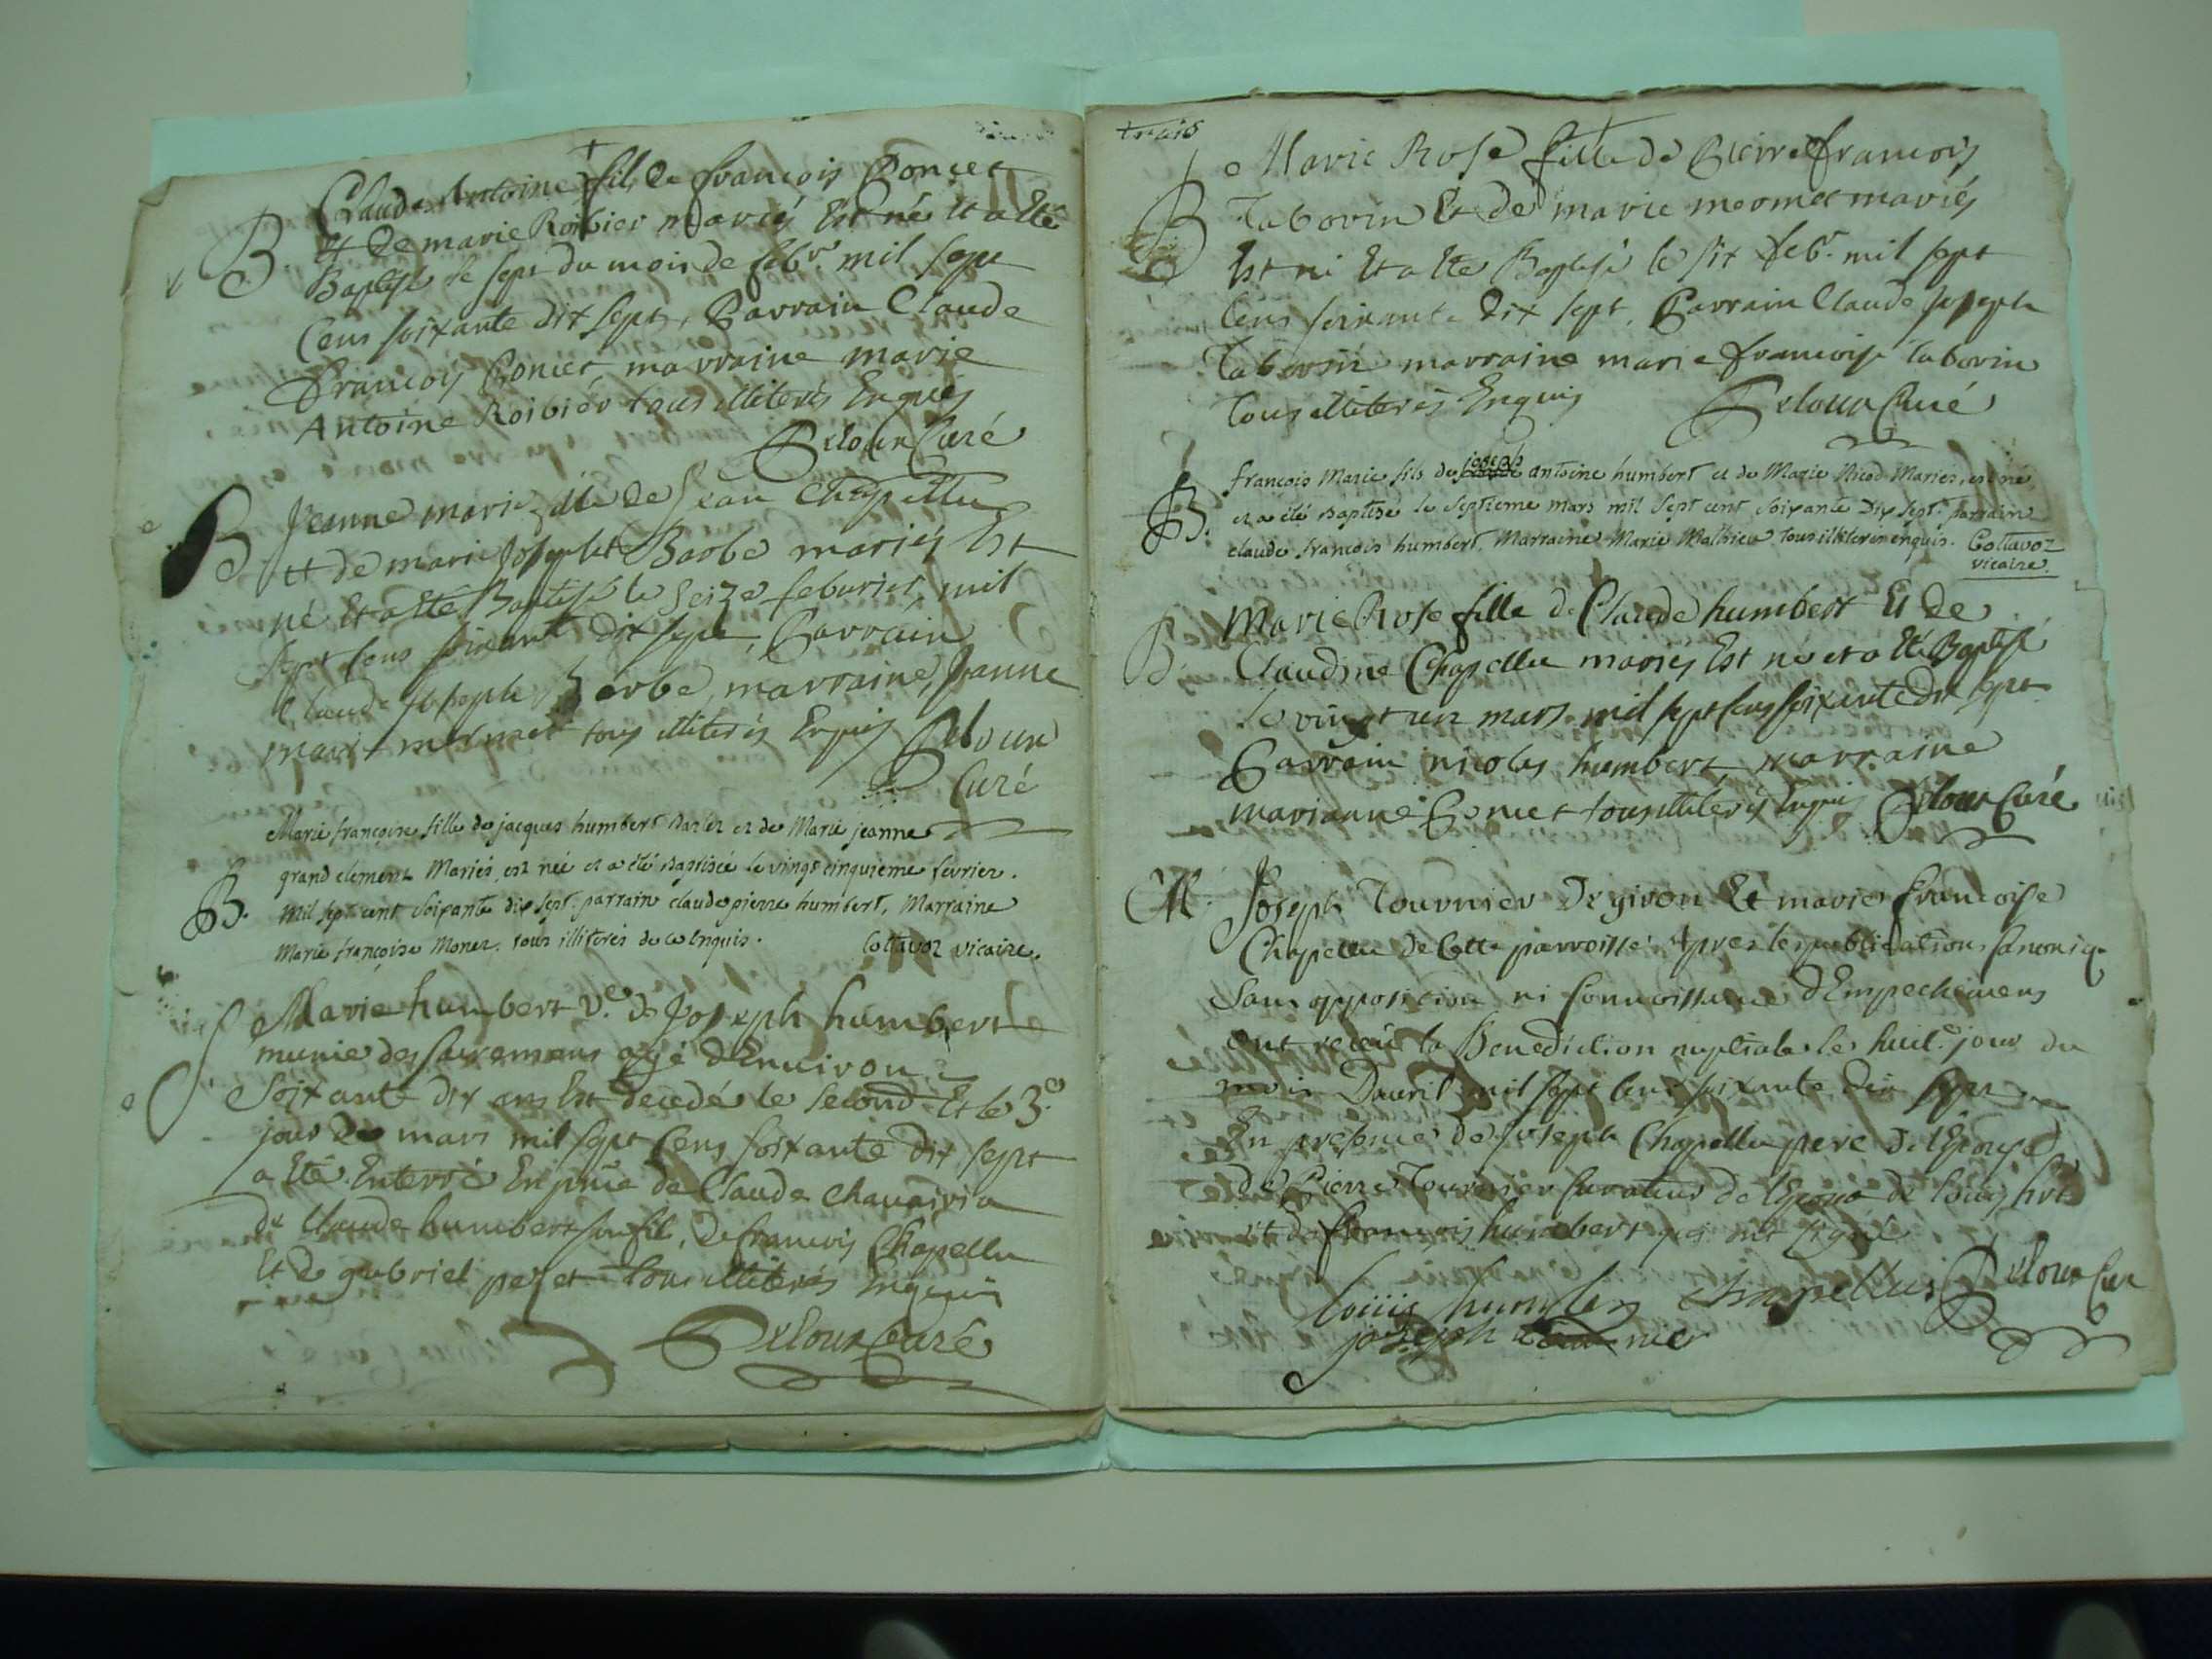 Claude Antoine fils de françois Poncet
B. et de marie Roibier mariés Est né et a Eté
Baptisé le sept du mois de febr. mil sept
Cens soixante dix sept, Parrain Claude
François Poncet, marraine marie
Antoine Roibier tous illiterés Enquis
Curé
B Jeanne marie fille de Jean Chapellu
et de marie Josephte Barbe mariés Est
né Et a Eté Baptisé le Seize feburier mil
Sept Cens soixante dix sept, Parrain
Claude Joseph barbe, marraine, Jeanne
marie tous illiterés Enquis
Curé
Marie françoise fille de jacques humbert et de Marie jeanne
grand clement Mariés, est née et a été Baptisée le vingt cinquieme fevrier.
B. mil sept cent soixante dix sept. parrain claude pierre humbert, Marraine
Marie françoise Monet. tous illiterés de ce Enquis. Cottavoz vicaire.
Marie humbert ve. de Joseph humbert
S munie des sacremens agé d'Enuiron
soixante dix ans Est decedé le second Et le 3e.
jour de mars mil sept Cens soixante dix sept
a Eté Enterré En pnce de Claude
de Claude humbert son fils, De françois Chapellu
Et de gabriel tous illiterés Enquis
Curé
trois
Marie Rose fille de Pierre françois
B Taborin Et de marie mermet mariés
Est né Et a Eté Baptisé le six feb. mil sept
Cens soixante Dix sept, Parrain Claude Joseph
Taborin marraine marie françoise Taborin
Tous illiterés Enquis Curé
françois Marie fils de joseph antoine humbert et de Marie Nicod Mariés, est né
B. et a été Baptisé le septieme mars mil sept cent soixante dix sept. parrain
claude françois humbert, Marraine Marie Mathieu. tous illiterés enquis. Cottavoz
vicaire.
Marie Rose fille de Claude humbert Et de
B. Claudine Chapellu mariés Est né et a Eté Baptisé
le vingt un mars mil sept Cens soixante dix sept
Parrain nicolas humbert, marraine
marianne Poncet tous illiterés Enquis Curé
M. Joseph Tournier De giron Et marie françoise
Chapellu de Cette parroisse. Apres les publications Canoniq.
Sans opposition ni Connoissance d'Empechemens
ont reçeu la Benediction nuptiale le huit. jour du
mois Dauril mil sept Cens soixante dix sept
En presence de Joseph Chapellu pere de l'Epouse
de Pierre Tournier Curateur de l'Epoux de Louis
et de françois humbert qui ont signé
loüis humbert chapellus Cur
joseph tournier